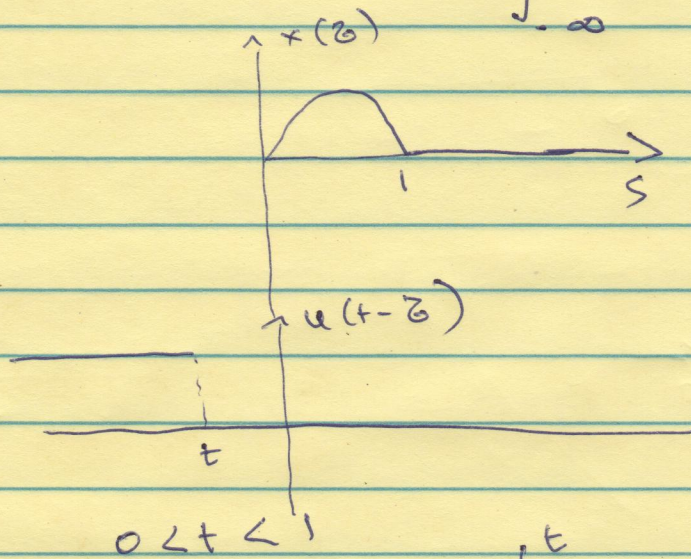 ∫-∞
x(τ)
1
S
u(t-τ)
t
0 < t < 1
t